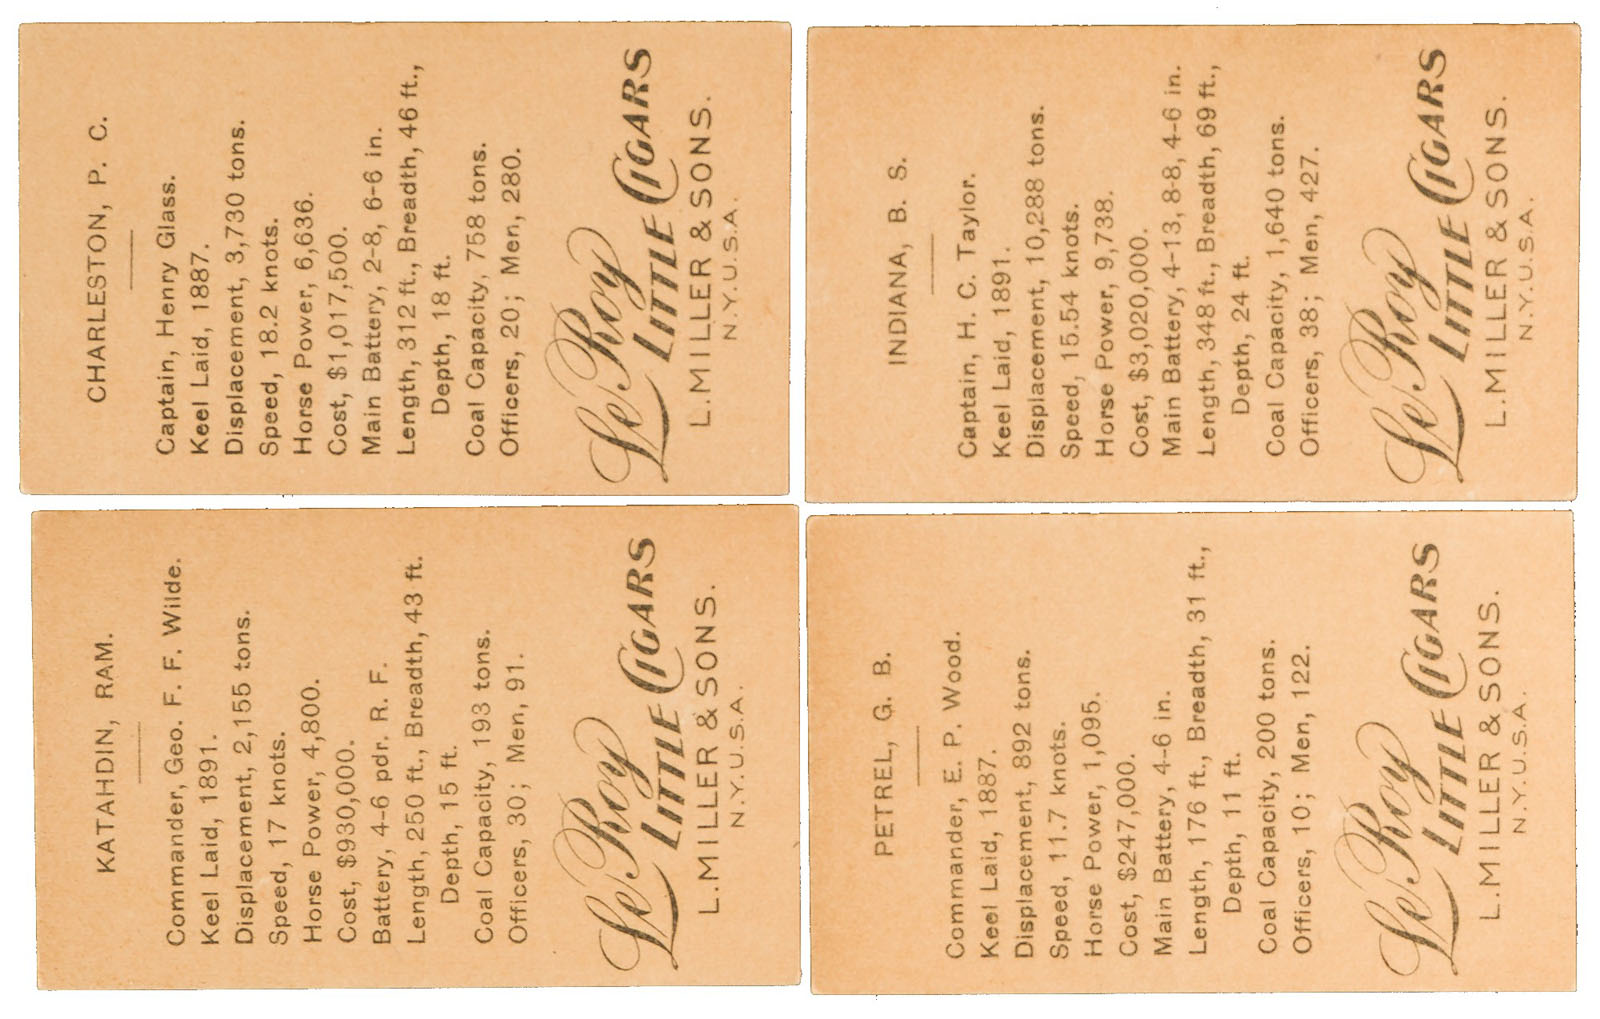 CHARLESTON, P. C.
Captain, Henry Glass.
Keel Laid, 1887.
Displacement, 3,730 tons.
Speed, 18.2 knots.
Horse Power, 6,636.
Cost, $1,017,500.
Main Battery, 2-8, 6-6 in.
Length, 312 ft., Breadth, 46 ft.,
Depth, 18 ft.
Coal Capacity, 758 tons.
Officers, 20; Men, 280.
Le Roy
LITTLE CIGARS
L. MILLER & SONS.
N.Y. U.S.A.
INDIANA, B. S.
Captain, H. C. Taylor.
Keel Laid, 1891.
Displacement, 10,288 tons.
Speed, 15.54 knots.
Horse Power, 9,738.
Cost, $3,020,000.
Main Battery, 4-13, 8-8, 4-6 in.
Length, 348 ft., Breadth, 69 ft.,
Depth, 24 ft.
Coal Capacity, 1,640 tons.
Officers, 38; Men, 427.
Le Roy
LITTLE CIGARS
L. MILLER & SONS.
N.Y. U.S.A.
KATAHDIN, RAM.
Commander, Geo. F. F. Wilde.
Keel Laid, 1891.
Displacement, 2,155 tons.
Speed, 17 knots.
Horse Power, 4,800.
Cost, $930,000.
Battery, 4-6 pdr. R. F.
Length, 250 ft., Breadth, 43 ft.
Depth, 15 ft.
Coal Capacity, 193 tons.
Officers, 30; Men, 91.
Le Roy
LITTLE CIGARS
L. MILLER & SONS.
N.Y. U.S.A.
PETREL, G. B.
Commander, E. P. Wood.
Keel Laid, 1887.
Displacement, 892 tons.
Speed, 11.7 knots.
Horse Power, 1,095.
Cost, $247,000.
Main Battery, 4-6 in.
Length, 176 ft., Breadth, 31 ft.,
Depth, 11 ft.
Coal Capacity, 200 tons.
Officers, 10; Men, 122.
Le Roy
LITTLE CIGARS
L. MILLER & SONS.
N.Y. U.S.A.